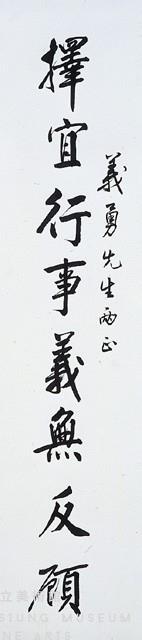 義勇先生兩正
擇宜行事義無反顧
立美
SIUNG MUSEUM
INE ARTS